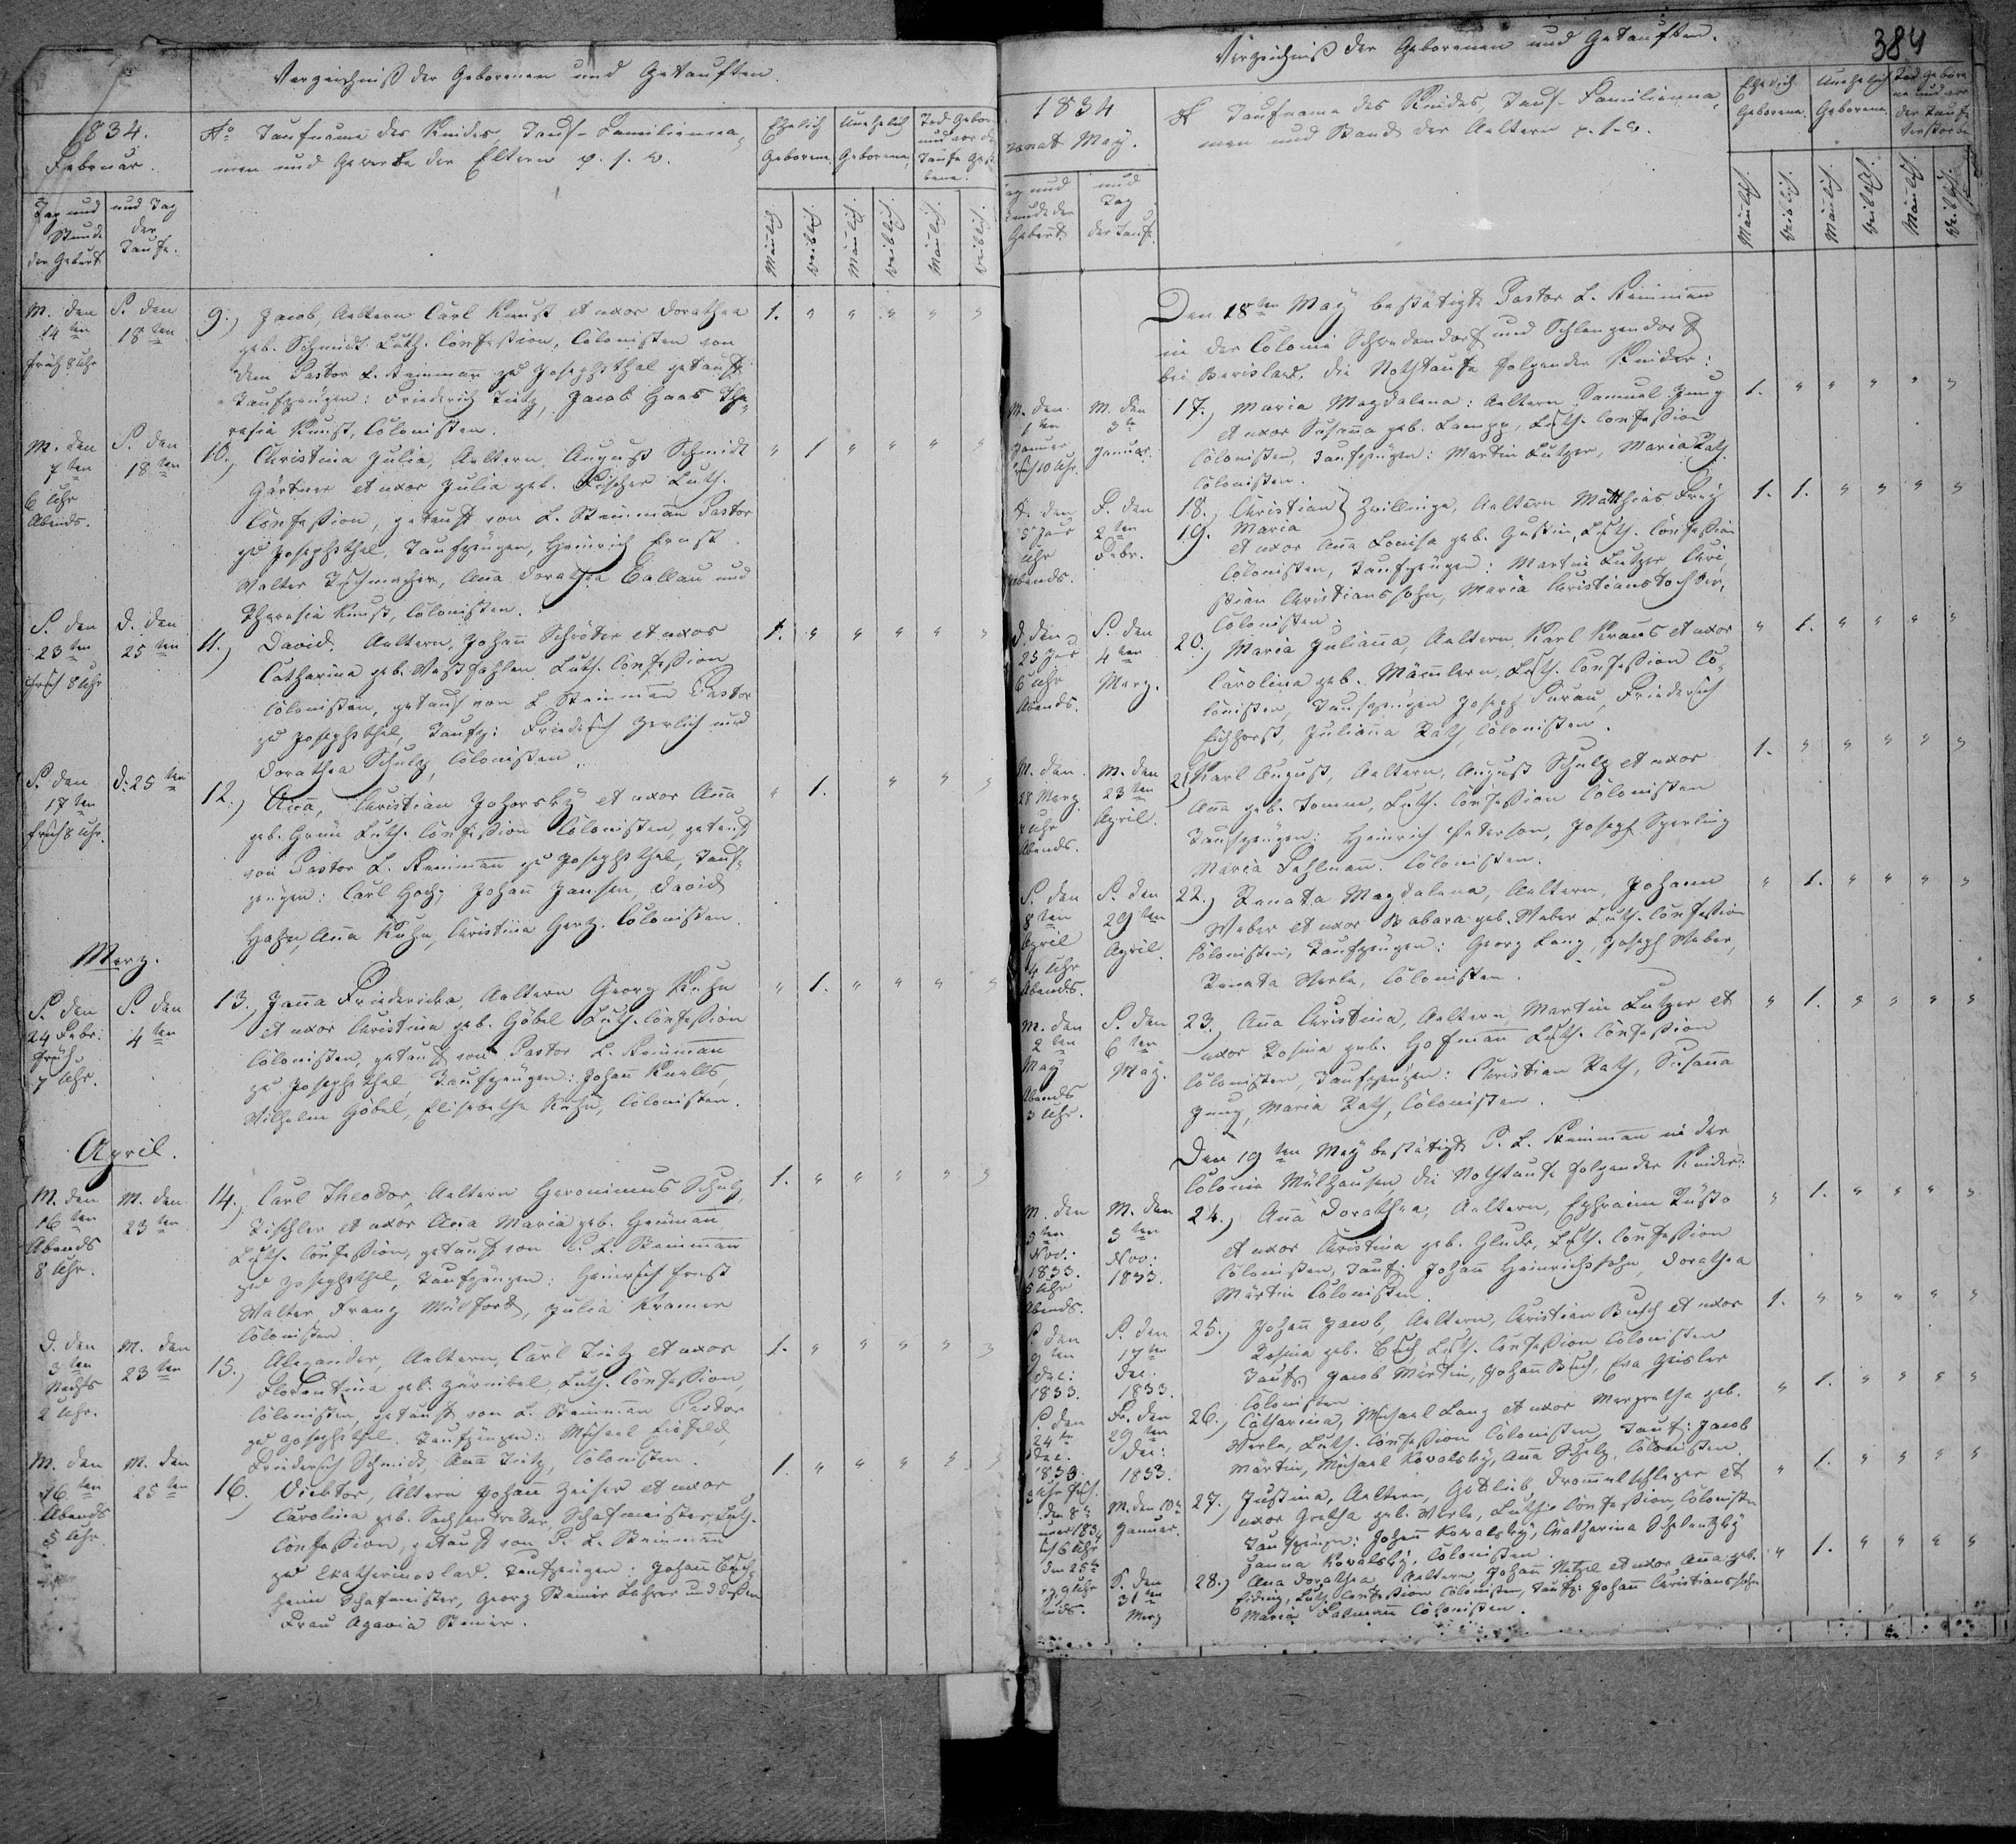 Verzeichniß der Geborenen und Getauften.
1834.
Februar.
Tag und Stunde der Geburt
und Tag der Taufe.
No Taufname des Kindes, Tauf- Familienna-
men und Gewerbe der Eltern p. s. w.
Ehelich Geborene.
Unehelich Geborene.
Männlich. Weiblich. Männlich. Weiblich. Männlich. Weiblich.
M. den 14ten früh 8 Uhr
S. den 18ten
9., Jacob, Aeltern Carl Knust et uxor Dorathea
geb. Schmidt Luth. Confeßion, Colonisten von
dem Pastor L. Steinman zu Josephsthal getauft
Taufzeugen: Friederich Tietz, Jacob Haas The-
resia Knust, Colonisten.
M. den 7ten 6 Uhr Abends.
S. den 18ten
10., Christina Julia, Aeltern August Schmidt
Gärtner et uxor Julia geb. Fischer Luth.
Confeßion, getauft von L. Steinman Pastor
zu Josephsthal, Taufzeugen, Heinrich Ernst
Walter Tuchmacher, Ana Dorathea Callau und
Theresia Knust, Colonisten.
S. den 23ten früh 8 Uhr
D. den 25ten
11., David, Aeltern, Johan Schröder et uxor
Catharina geb. Westfahlen Luth. Confeßion
Colonisten, getauf von L Steinman Pastor
zu Josephsthal, Taufz: Friederich Gerlich und
Dorathea Schulz, Colonisten.
S. den 17ten früh 8 Uhr.
D. 25ten
12., Ana, Christian Johorsky et uxor Ana
geb. Grün Luth. Confeßion Colonisten, getauf
von Pastor L. Steinman zu Josephsthal, Tauf-
zeugen: Carl Hoch, Johan Jansen, David
Hahn, Ana Kuhn, Christina Hertz. Colonisten.
Merz.
S. den 24 Febr. früh 7 Uhr.
S. den 4ten
13. Jana Friedericka, Aeltern Georg Kuhn
et uxor Christina geb. Göbel Luth. Confeßion
Colonisten, getauft von Pastor L. Steinman
zu Josephsthal, Taufzeugen: Johan Knelts,
Wilhelm Göbel, Elisabetha Kuhn, Colonisten.
April.
M. den 16ten Abends 8 Uhr.
M. den 23ten
14., Carl Theodor, Aeltern Geronimus Schulz,
Tischler et uxor Ana Maria geb. Heinman
Luth. Confeßion, getauft von P. L. Steinman
zu Josephsthal, Taufzeugen: Heinrich Ernst
Walter Franz Mülford, Julia Kramer
Colonisten
D. den 3ten Nachts 2 Uhr.
M. den 23ten
15., Alexander, Aeltern, Carl Tietz et uxor
Florentina geb. Zörnibel, Luth. Confeßion,
Colonisten, getauft von L. Steinman Pastor
zu Josephsthal, Taufzeugen: Michael Eisfeld,
Friederich Schmidt, Ana Tietz, Colonisten.
M. den 16.ten Abends 5 Uhr.
M. den 25ten
16. Vicktor, Ältern Johan Zeiser et uxor
Carolina geb. Schafmeister, Luth.
Confeßion, getauft von P. L. Steinman
zu Ekatherinoslav. Taufzeugen: Johan Buch-
heim Schafmeister, Georg Steiner Lehrer und deßen
Frau Agavia Steiner.
384
Verzeichniß der Geborenen und Getauften.
1834
Monat May.
Tag und Stunde der Geburt
und Tag der Taufe.
No Taufname des Kindes, Tauf- Familienna-
men und Stand der Aeltern p. s. w.
Ehelich Geborene.
Unehelich Geborene.
Männlich. Weiblich. Männlich. Weiblich. Männlich. Weiblich.
Den 18ten May bestätigte Pastor L. Steinman
in der Colonie Schwedendorf und Schlangendorf
bei Berislaw, die Nothtaufe folgender Kinder:
M. den 1ten Januar früh 10 Uhr.
M. den 3te Januar.
17., Maria Magdalena: Aeltern Samuel Jung
et uxor Susana geb. Lampp, Luth. Confeßion
Colonisten, Taufzeugen: Martin Lutzer, Maria Rath
Colonisten.
F. den 2ten Febr.
18., Christian } Zwillinge, Aeltern Matthias Frey
19. Maria
et uxor Ana Louisa geb. Gustin, Luth. Confeßion
Colonisten, Taufzeugen: Martin Lutzer, Chri-
stian Christianssohn, Maria Christianstochter,
Colonisten.
D. den 25 Jan 6 Uhr Abends.
S. den 4ten Merz.
20., Maria Juliana, Aeltern, Karl Kraus et uxor
Carolina geb. Mämlern, Luth. Confeßion Co-
lonisten, Taufzeugen Joseph Furau, Friederich
Eichhorst, Juliana Rath, Colonisten.
M. den 28 Merz Uhr Abends.
M. den 23ten April.
21., Karl August, Aeltern, August Schulz et uxor
Ana geb. Tomm, Luth. Confeßion Colonisten
Taufzeugen: Heinrich Peterson, Joseph Sperling
Maria Pohlman. Colonisten.
S. den 8ten April 4 Uhr Abends.
S. den 29ten April.
22., Renata Magdalena, Aeltern, Johann
Weber et uxor Babara geb. Weber Luth. Confeßion
Colonisten, Taufzeugen: Georg Lang, Joseph Weber,
Renata Werle, Colonisten.
M. den 2ten May Abends 3 Uhr.
S. den 6ten May.
23., Ana Christina, Aeltern, Martin Lutzer et
uxor Rosina geb. Hofman Luth. Confeßion
Colonisten, Taufzeugen: Christian Rath, Susana
Jung, Maria Rath, Colonisten.
Den 19ten May bestätigte P. L. Steinman in der
Colonie Mülhausen die Nothtaufe folgender Kinder:
M. den 3ten Nov: 1833. 5 Uhr Abends.
M. den 3ten Nov: 1833.
24., Ana Dorathea, Aeltern, Ephraim Rüsto
et uxor Christina geb. Glude, Luth. Confeßion
Colonisten, Tauf: Johan Heinrichssohn, Dorathea
Märtin Colonisten.
S. den 9ten Dec: 1833.
S. den 17ten Dec. 1833.
25., Johan Jacob, Aeltern, Christian Busch et uxor
Rosina geb. Esch, Luth. Confeßion Colonisten
Tauf. Jacob Märtin, Johan Busch, Eva Geisler
Colonisten.
S. den 24te Dec. 1833. 3 Uhr früh.
Fr. den 29ten Dec: 1833.
26., Catharina, Michael Lang et uxor Margretha geb.
Werle, Luth. Confeßion Colonisten, Tauf: Jacob
Märtin, Michael Kovalsky, Ana Schulz, Colonisten.
den 8te Januar 1834 früh 6 Uhr
M. den 10te Januar.
27., Justina, Aeltern, Gotlieb Drommelschlager et
uxor Gretha geb. Werle, Luth. Confeßion, Colonisten
Taufzeugen: Johan Kovalsky, Chatharina
Hanna Kovalsky, Colonisten.
den 25te 9 Uhr
S. den 31ten Merz
28., Ana Dorathea Aeltern, Johan Netzel et uxor Ana geb.
Eiding, Luth. Confeßion Colonisten, Taufz: Johan Christianssohn
Maria Falman Colonisten.